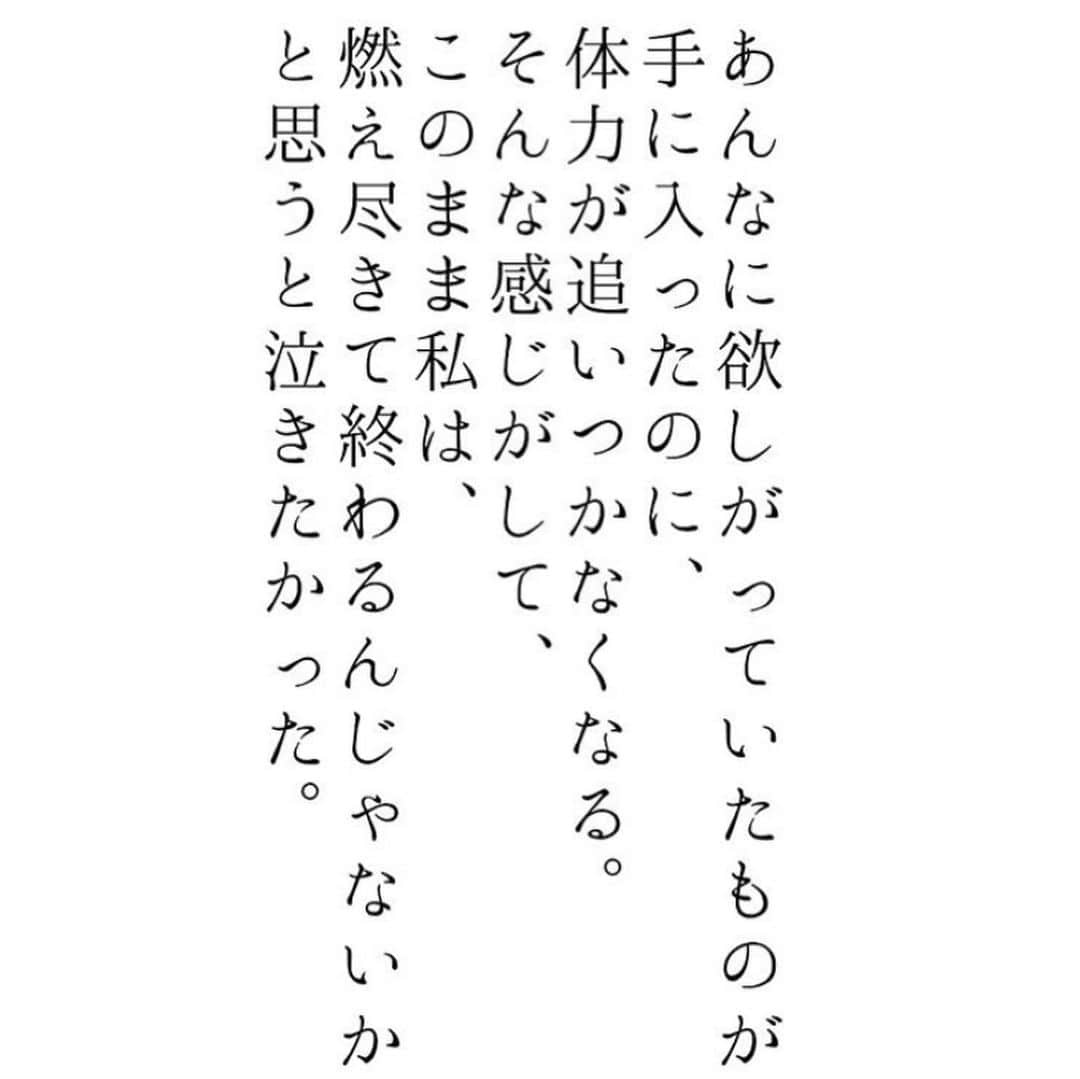 あんなに欲しがっていたものが
手に入ったのに、
体力が追いつかなくなる。
そんな感じがして、
このまま私は、
燃え尽きて終わるんじゃないか
と思うと泣きたかった。